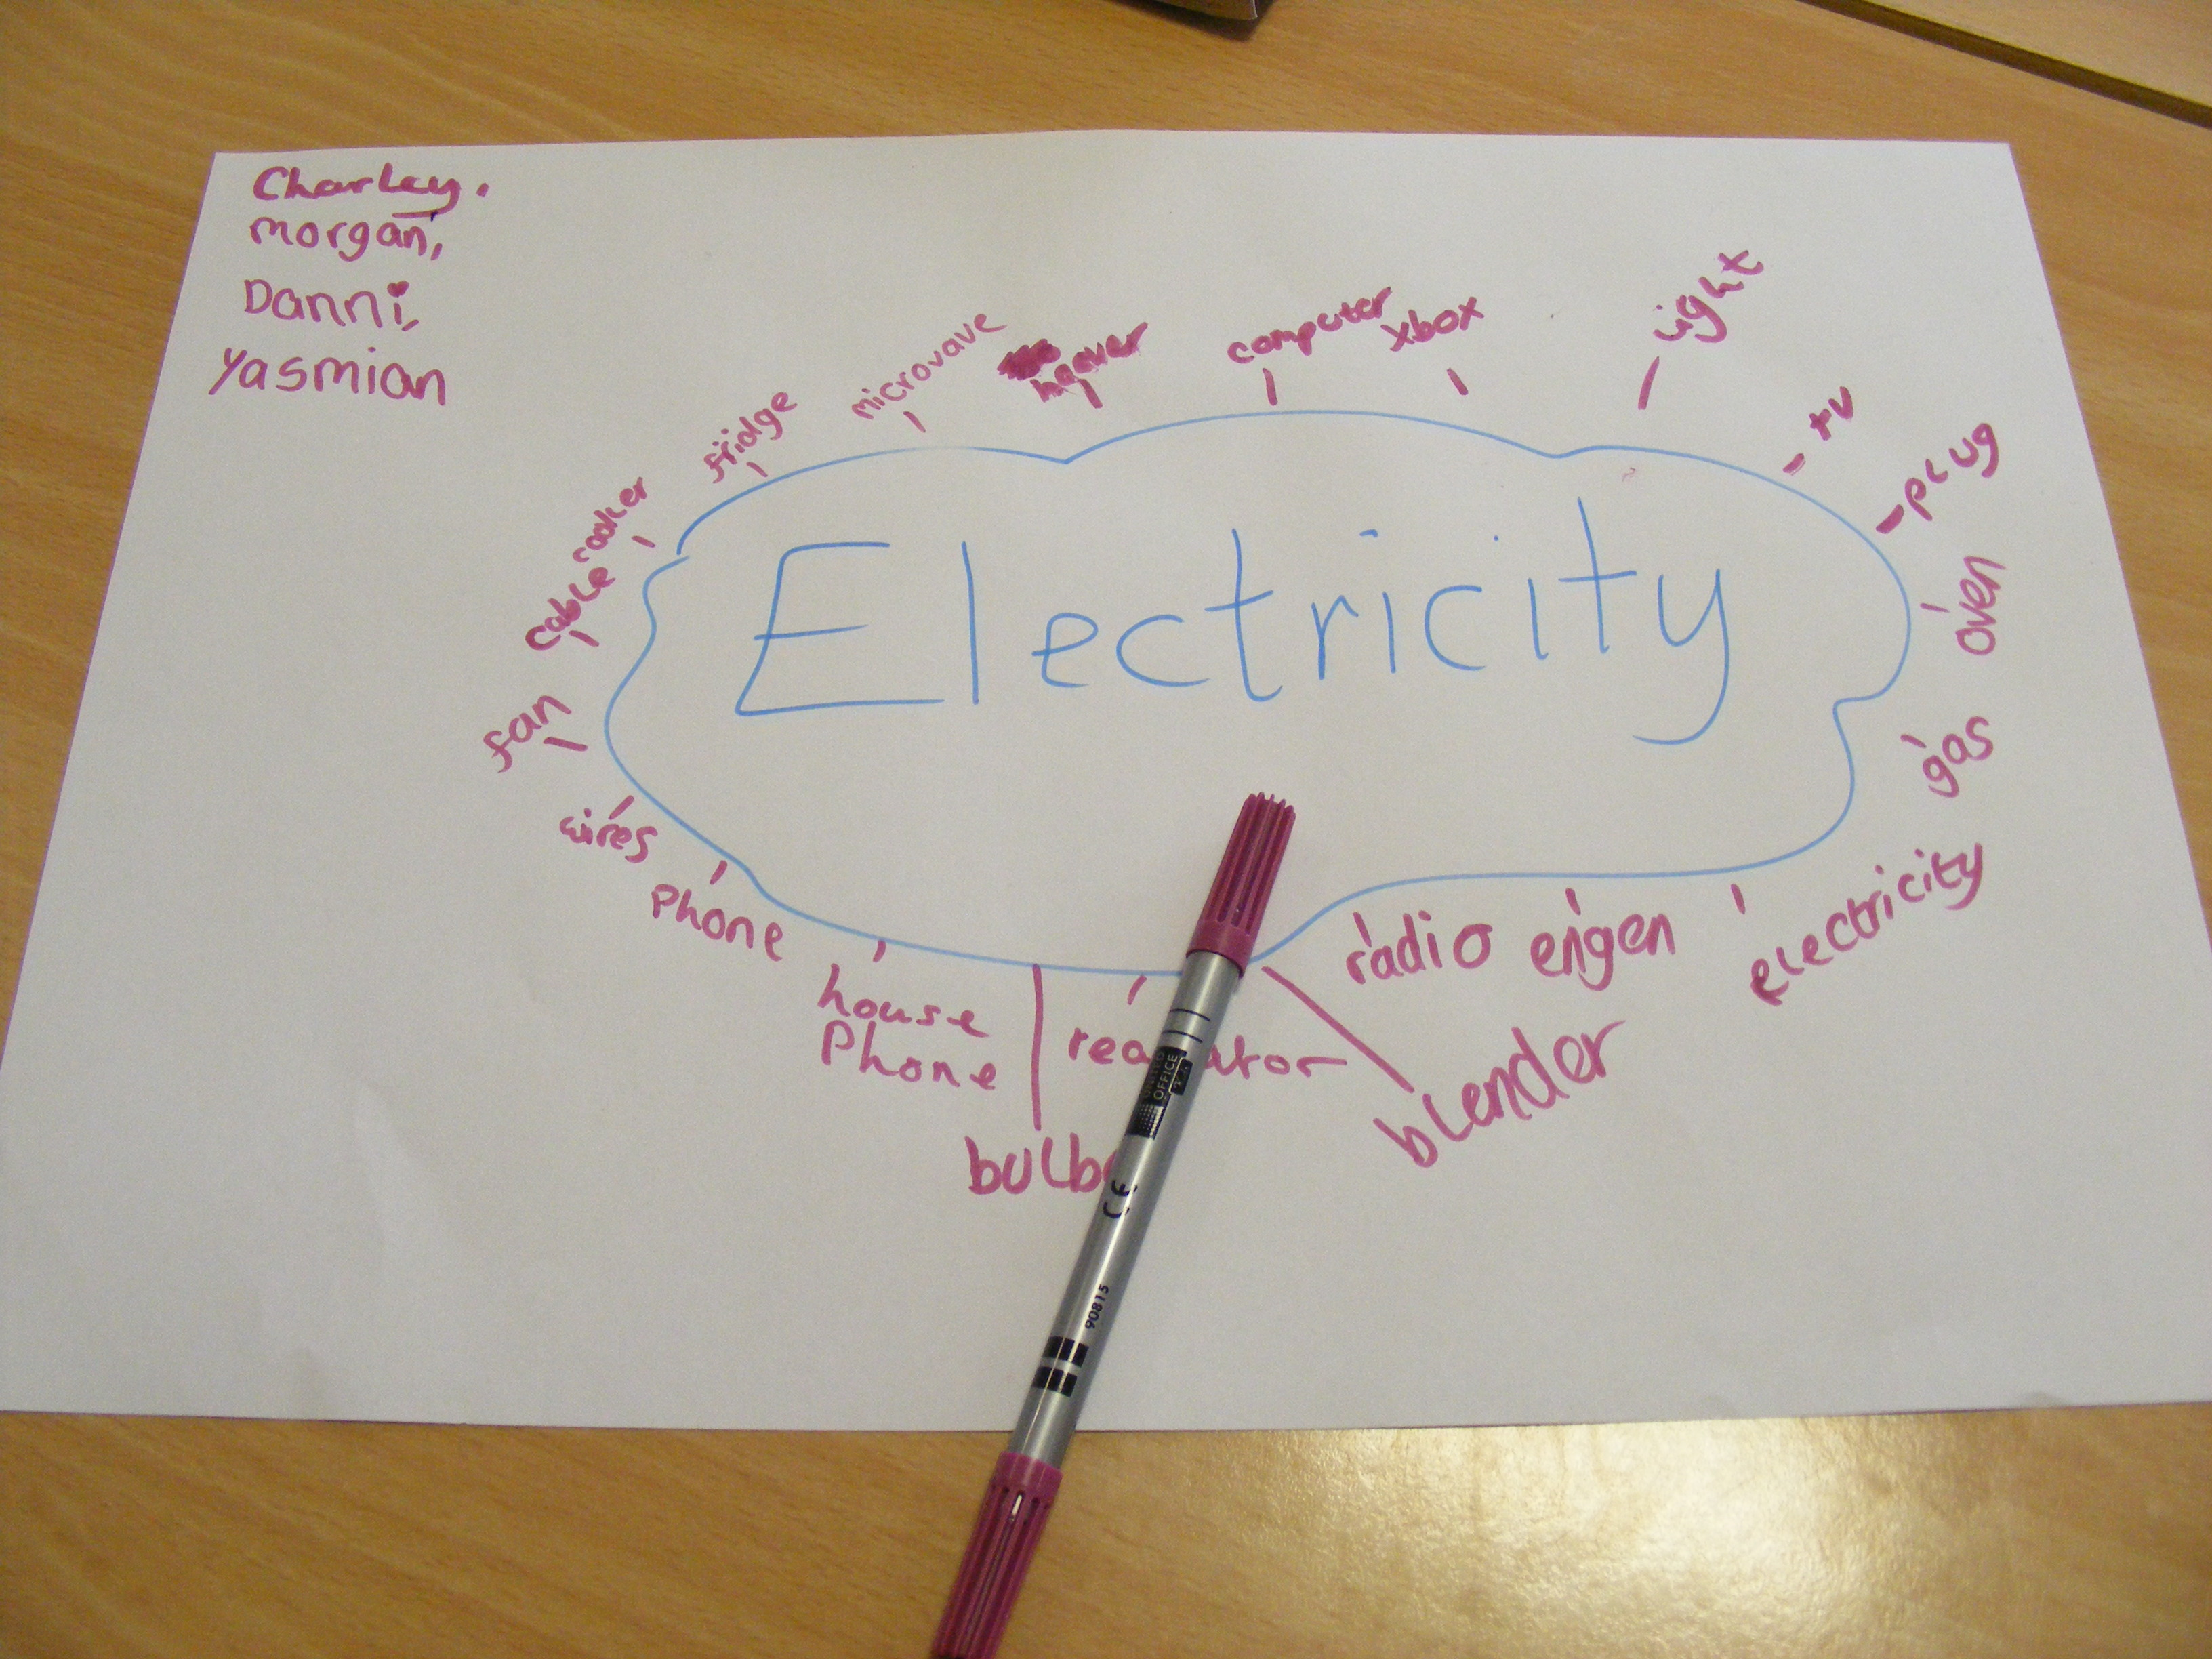 Charley.
morgan,
Danni,
Yasmian
Electricity
cable
cooker
fridge
microvave
hoover
computer
xbox
light
tv
plug
oven
gas
electricity
engen
radio
blender
house
Phone
Phone
wires
fan
OFFICE
CE
90815